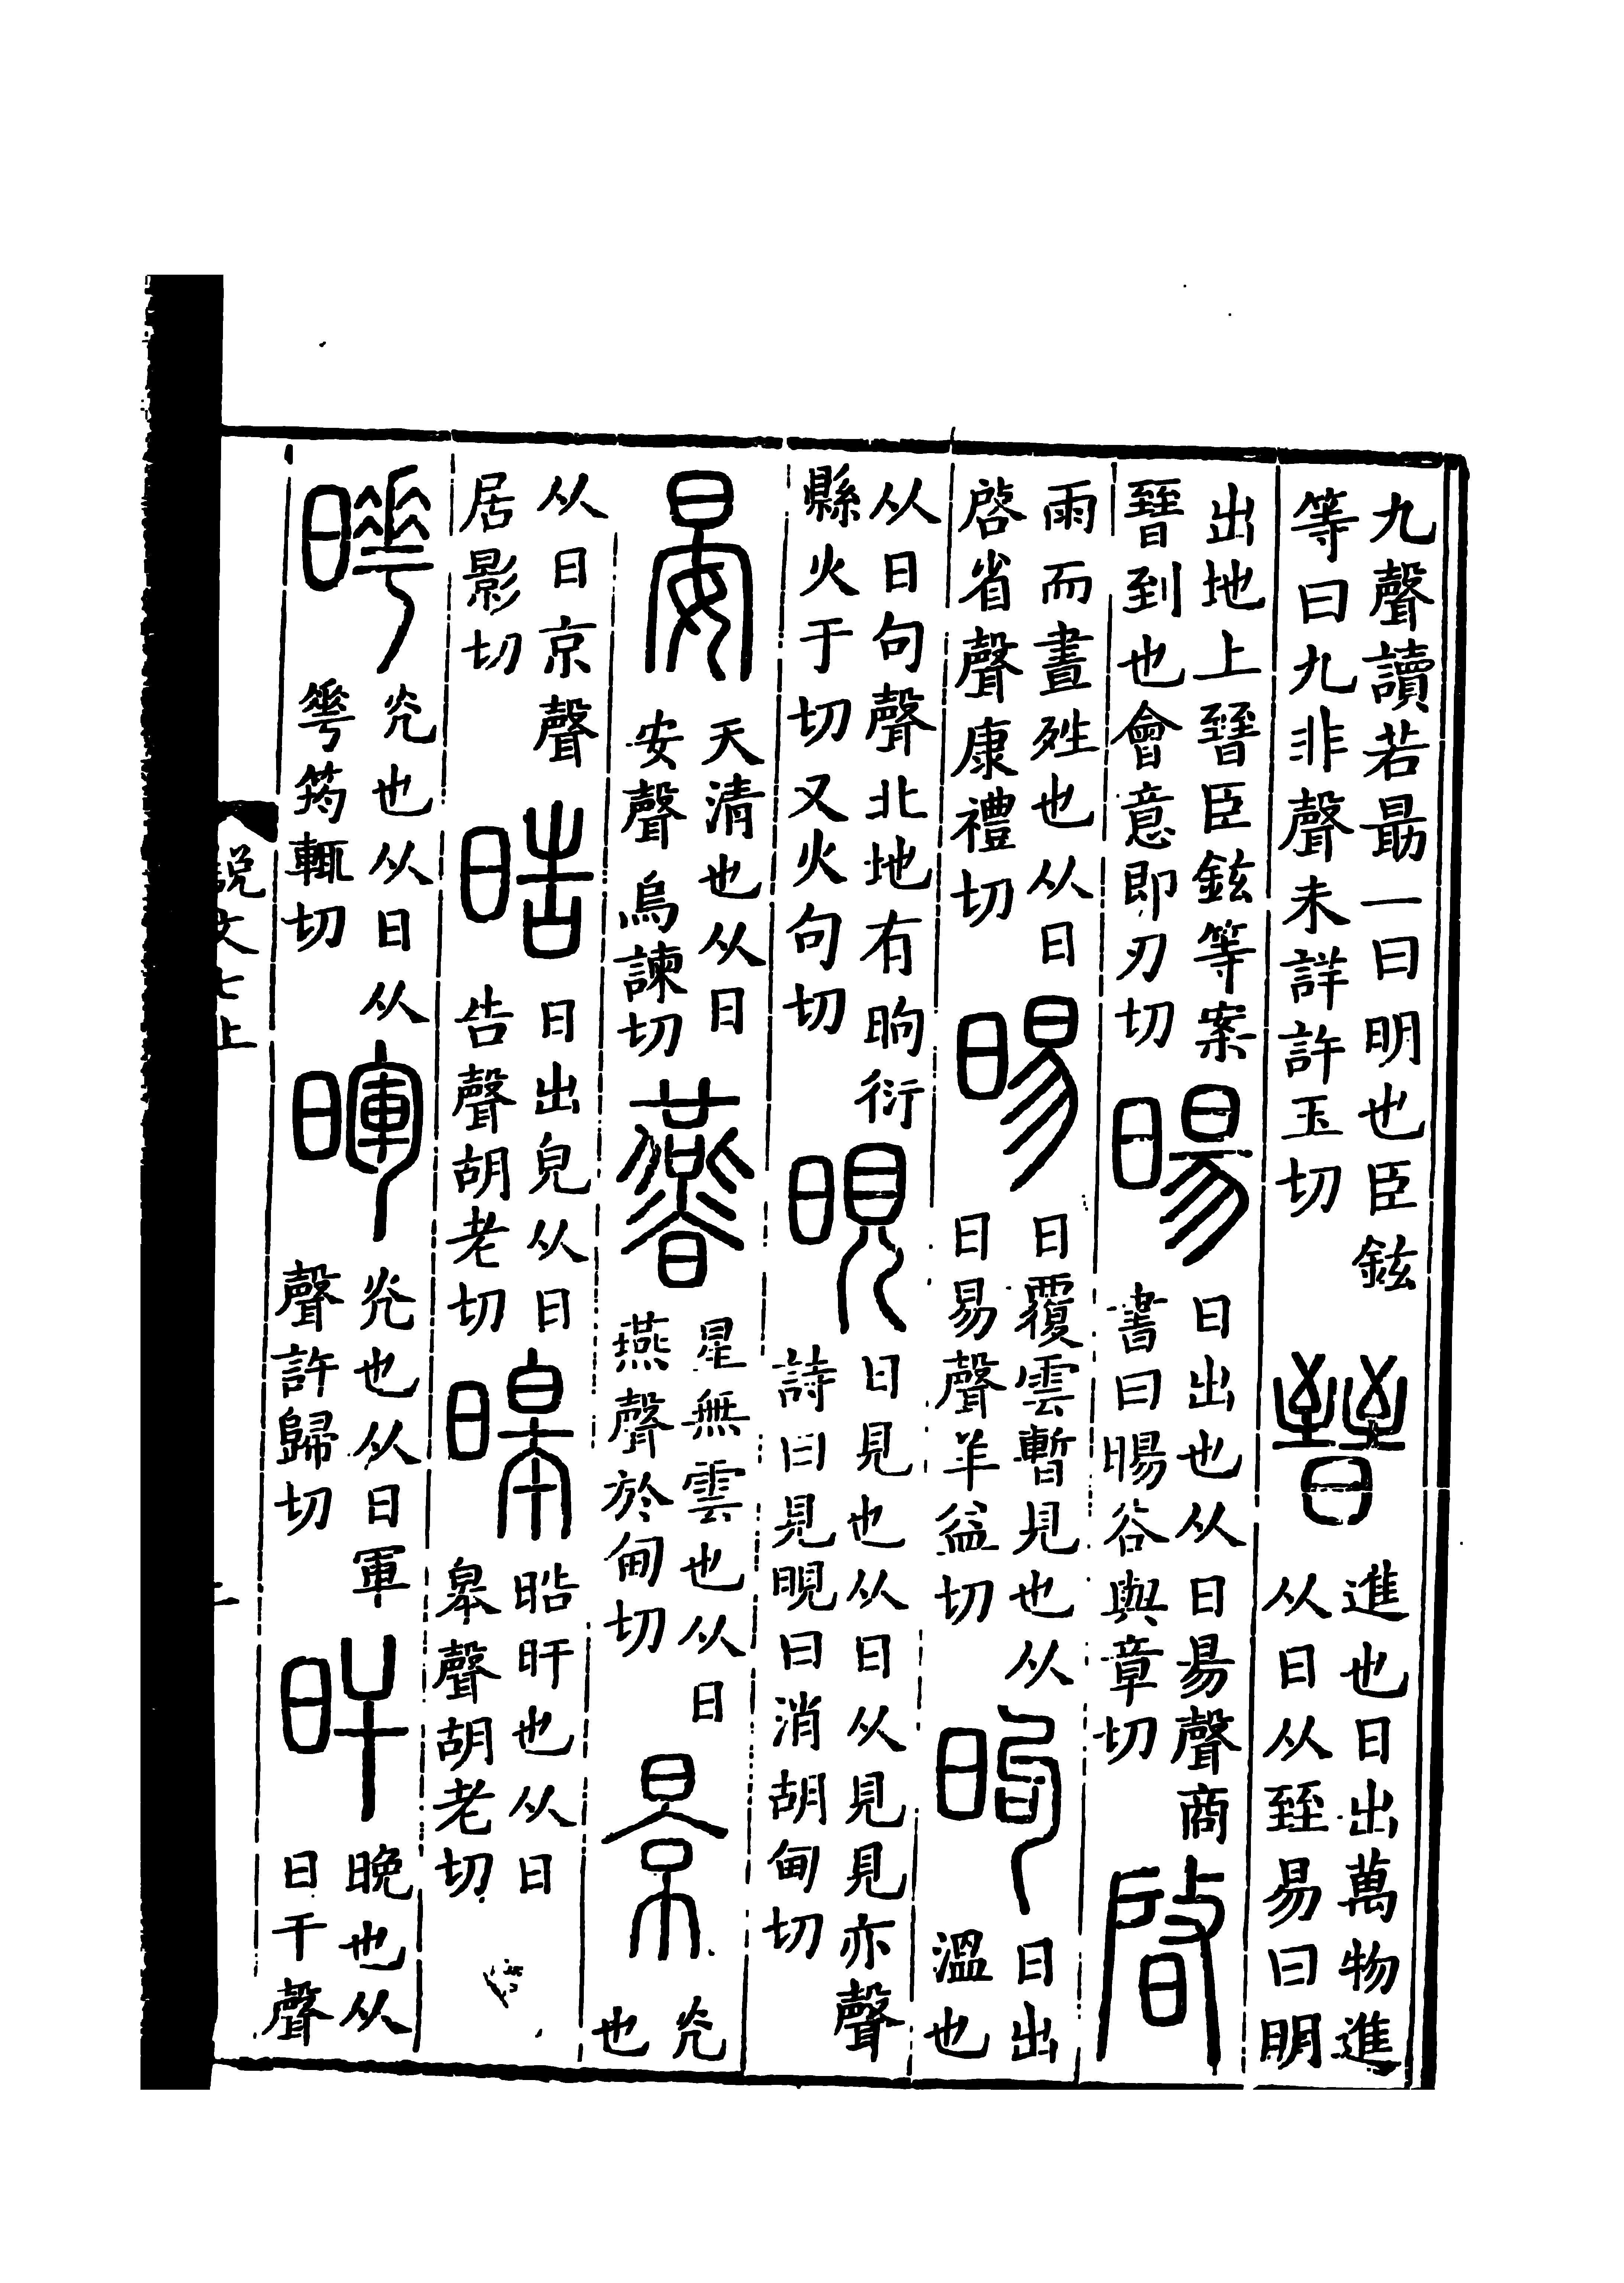 九聲讀若朂一曰明也臣鉉
等曰九非聲未詳許玉切
晉
進也日出萬物進
从日从臸易曰明
出地上㬜臣鉉等案
㬜到也會意即刃切
暘
日出也从日昜聲商
書曰暘谷與章切
啓
雨而晝夝也从日
啓省聲康禮切
晹
日覆雲暫見也从
日易聲羊益切
昫
日出
溫也
从日句聲北地有昫衍
縣火于切又火句切
晛
日見也从日从見見亦聲
詩曰見晛曰消胡甸切
晏
天清也从日
安聲烏諫切
㬫
星無雲也从日
燕聲於甸切
景
光
也
从日京聲
居影切
晧
日出皃从日
告聲胡老切
暤
晧旰也从日
皋聲胡老切
曄
光也从日从
𠌶筠輒切
暉
光也从日軍
聲許歸切
旰
晚也从
日干聲
說文七上